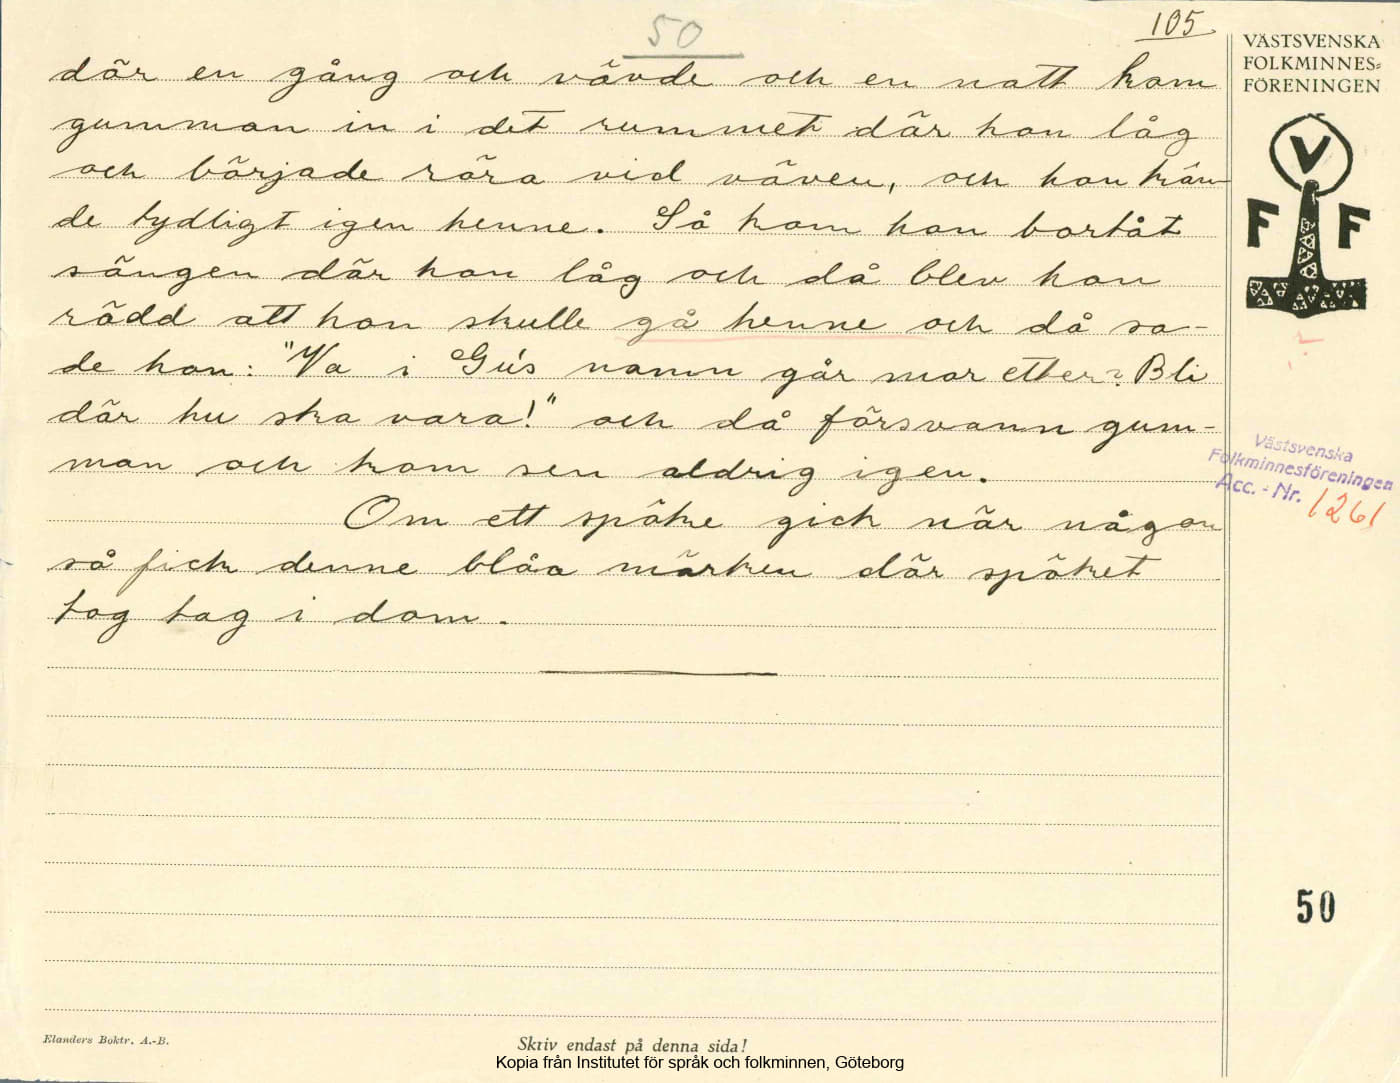 50
105
där en gång och vävde och en natt kom
gumman in i det rummet där hon låg
och började röra vid väven, och hon kän-
de tydligt igen henne. Så kom hon bortåt
sängen där hon låg och då blev hon
rädd att hon skulle gå henne och då sa-
de hon: "Va i Gu's namn går mor etter? Bli
där hu ska vara!" och då försvann gum-
man och kom sen aldrig igen.
Om ett spöke gick när någon
så fick denne blåa märken där spöket
tog tag i dom.
VÄSTSVENSKA
FOLKMINNES=
FÖRENINGEN
V
F F
?
Västsvenska
Folkminnesföreningen
Acc. - Nr. 1261
50
Elanders Boktr. A.-B.
Skriv endast på denna sida!
Kopia från Institutet för språk och folkminnen, Göteborg